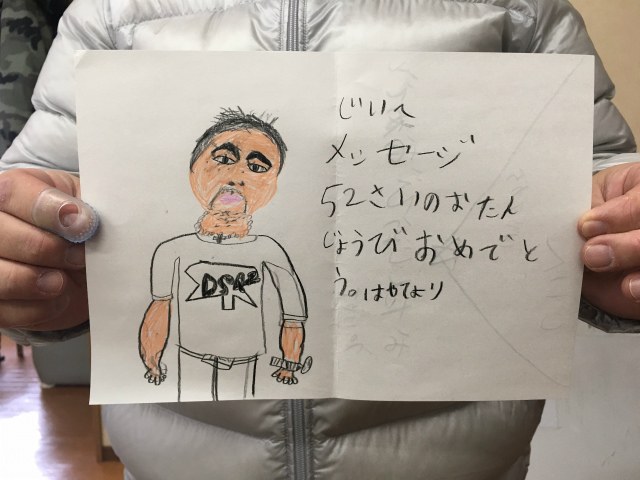 じいへ
メッセージ
52さいのおたん
じょうびおめでと
う。はやてより